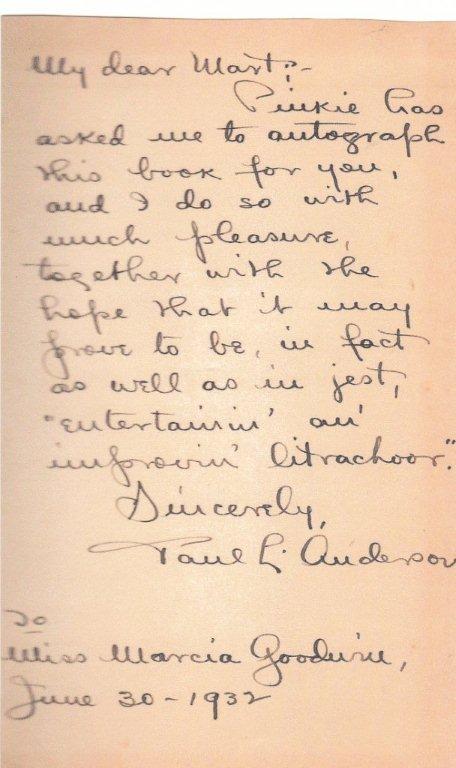 My dear Mart:-
Pinkie has
asked me to autograph
this book for you,
and I do so with
much pleasure,
together with the
hope that it may
prove to be, in fact
as well as in jest,
"entertainin' an'
improvin' litrachoor."
Sincerely,
Paul L. Anderson
To
Miss Marcia Goodwin,
June 30-1932